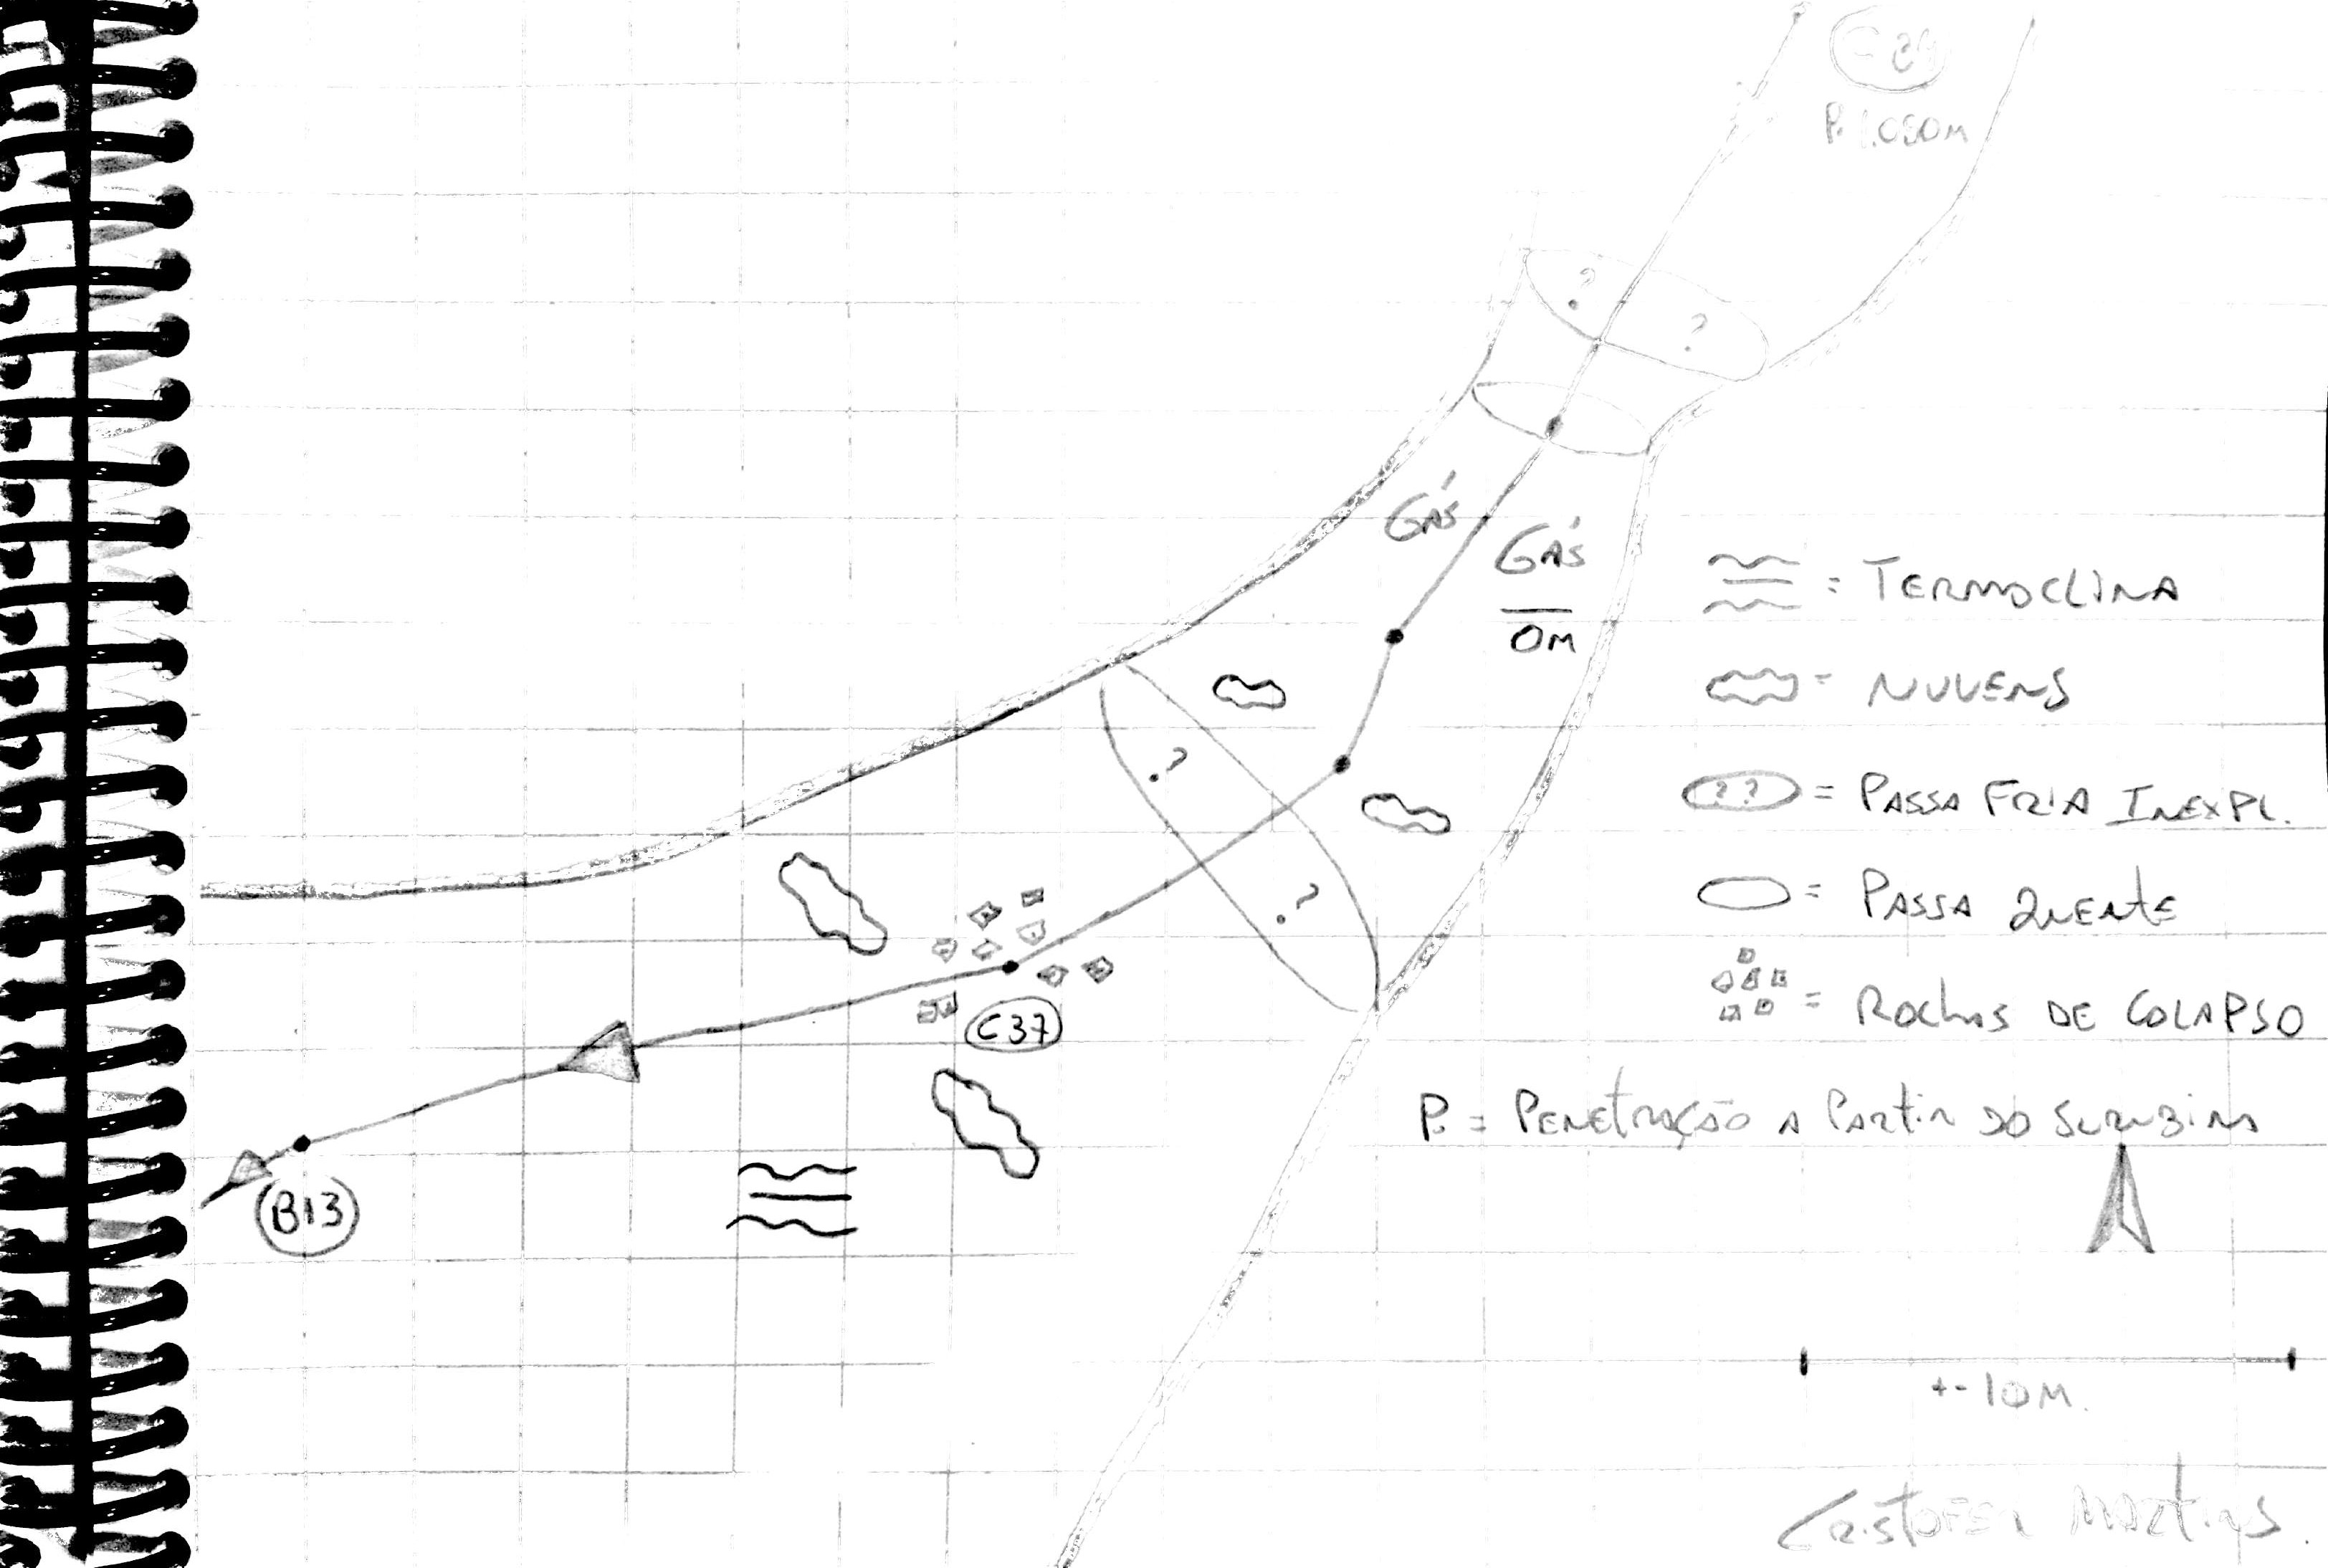 P. 1.050M
?
?
GÁS
GÁS
0M
?
?
C37
B13
= TERMOCLINA
= NUVENS
?? = PASSA FRIA INEXPL.
= PASSA QUENTE
= ROCHAS DE COLAPSO
P. = PENETRAÇÃO A PARTIR DO SURUBIM
+-10M.
CRISTOFER MARTINS.